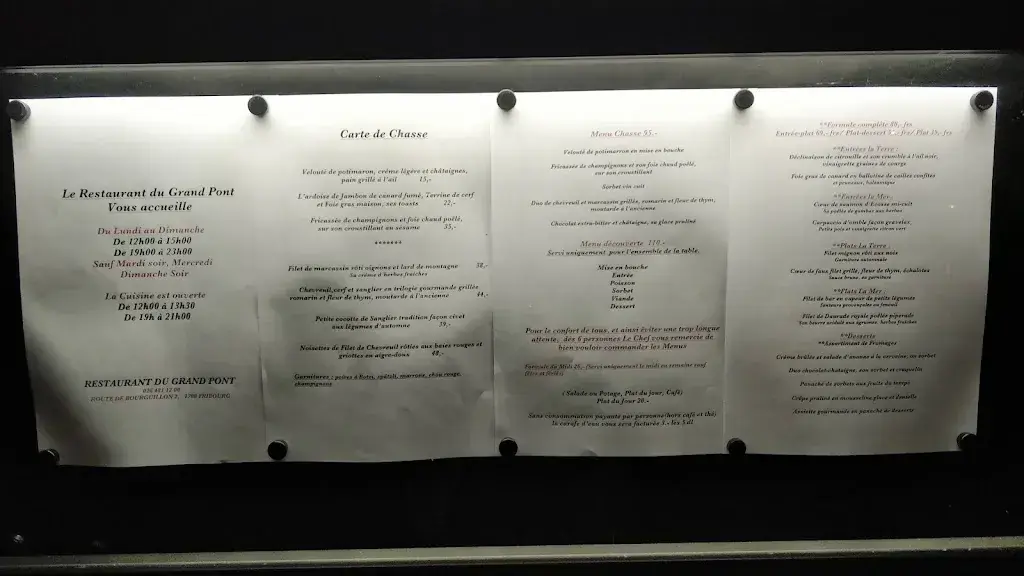 Le Restaurant du Grand Pont
Vous accueille
Du Lundi au Dimanche
De 12h00 à 15h00
De 19h00 à 23h00
Sauf Mardi soir, Mercredi
Dimanche Soir
La Cuisine est ouverte
De 12h00 à 13h30
De 19h à 21h00
RESTAURANT DU GRAND PONT
ROUTE DE BOURGUILLON 2, 1700 FRIBOURG
Carte de Chasse
Velouté de potimaron, crème légère et châtaignes,
pain grillé à l'ail 15,-
L'ardoise de Jambon de canard fumé, Terrine de cerf
et Foie gras maison, ses toasts 22,-
Fricassée de champignons et foie chaud poêlé,
sur son croustillant au sésame 35,-
*******
Filet de marcassin rôti oignons et lard de montagne 38,-
Sa crème d'herbes fraîches
Chevreuil,cerf et sanglier en trilogie gourmande grillés
romarin et fleur de thym, moutarde à l'ancienne 44,-
Petite cocotte de Sanglier tradition façon civet
aux légumes d'automne 39,-
Noisettes de Filet de Chevreuil rôties aux baies rouges et
griottes en aigre-doux 48,-
Garnitures : poires à Botzi, spätzli, marrons, chou rouge,
champignons
Menu Chasse 95.-
Velouté de potimarron en mise en bouche
Fricassée de champignons et son foie chaud poêlé,
sur son croustillant
Sorbet vin cuit
Duo de chevreuil et marcassin grillés, romarin et fleur de thym,
moutarde à l'ancienne
Chocolat extra-bitter et châtaigne, sa glace praliné
Menu découverte 110.-
Servi uniquement pour l'ensemble de la table.
Mise en bouche
Entrée
Poisson
Sorbet
Viande
Dessert
Pour le confort de tous, et ainsi éviter une trop longue
attente, dès 6 personnes Le Chef vous remercie de
bien vouloir commander les Menus
Formule du Midi (Servi uniquement le midi en semaine sauf
fêtes et fériés)
( Salade ou Potage, Plat du jour, Café)
Plat du Jour 20.-
Sans consommation payante par personne(hors café et thé)
la carafe d'eau vous sera facturée 3.- les 5 dl
**Formule complète 80,- frs
Entrée-plat 60,- frs/ Plat-dessert frs/ Plat frs
**Entrées la Terre :
Déclinaison de citrouille et son crumble à l'ail noir,
vinaigrette graines de courge
Foie gras de canard en ballotine de cailles confites
et pruneaux, balsamique
**Entrées la Mer :
Cœur de saumon d'Ecosse mi-cuit
Sa poêlée de gambas aux herbes
Carpaccio d'omble façon gravelax,
Petits pois et vinaigrette citron vert
**Plats La Terre :
Filet mignon rôti aux noix
Garniture automnale
Cœur de faux filet grillé, fleur de thym, échalotes
Sauce brune, sa garniture
**Plats La Mer :
Filet de bar en vapeur de petits légumes
Filet de Daurade royale poêlée piperade
Son beurre acidulé aux agrumes, herbes fraîches
**Desserts
**Assortiment de Fromages
Crème brûlée et salade d'ananas à la verveine, son sorbet
Duo chocolat-châtaigne, son sorbet et croquelin
Panaché de sorbets aux fruits du temps
Crêpe praliné en mousseline glace et dentelle
Assiette gourmande en panaché de desserts